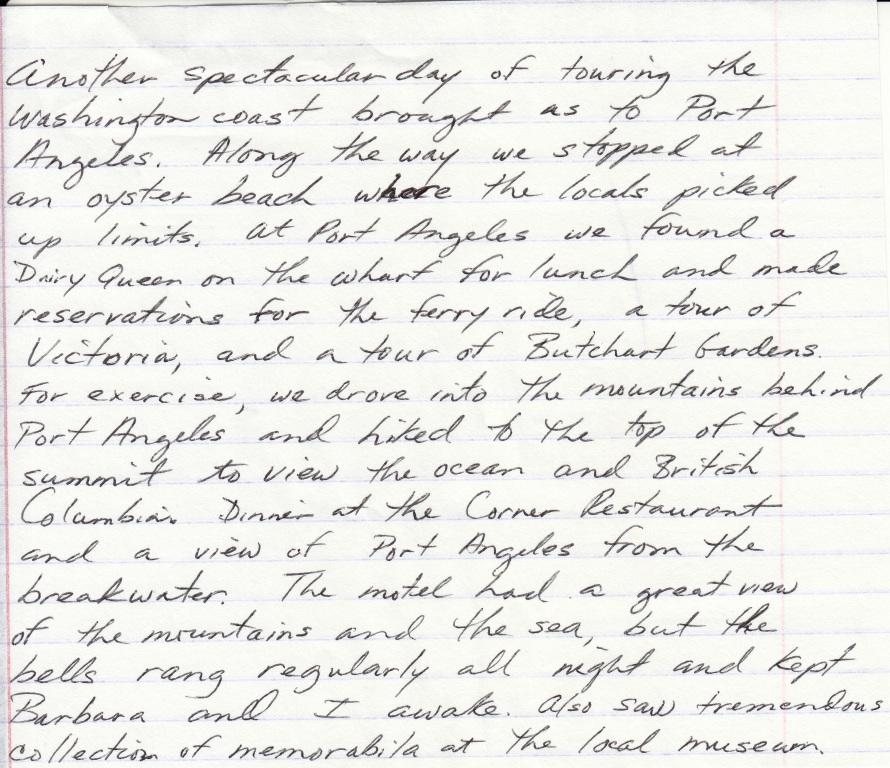 Another spectacular day of touring the
Washington coast brought as to Port
Angeles. Along the way we stopped at
an oyster beach where the locals picked
up limits. At Port Angeles we found a
Dairy Queen on the wharf for lunch and made
reservations for the ferry ride, a tour of
Victoria, and a tour of Butchart Gardens.
For exercise, we drove into the mountains behind
Port Angeles and hiked to the top of the
summit to view the ocean and British
Columbia. Dinner at the Corner Restaurant
and a view of Port Angeles from the
breakwater. The motel had a great view
of the mountains and the sea, but the
bells rang regularly all night and kept
Barbara and I awake. Also saw tremendous
collection of memorabila at the local museum.